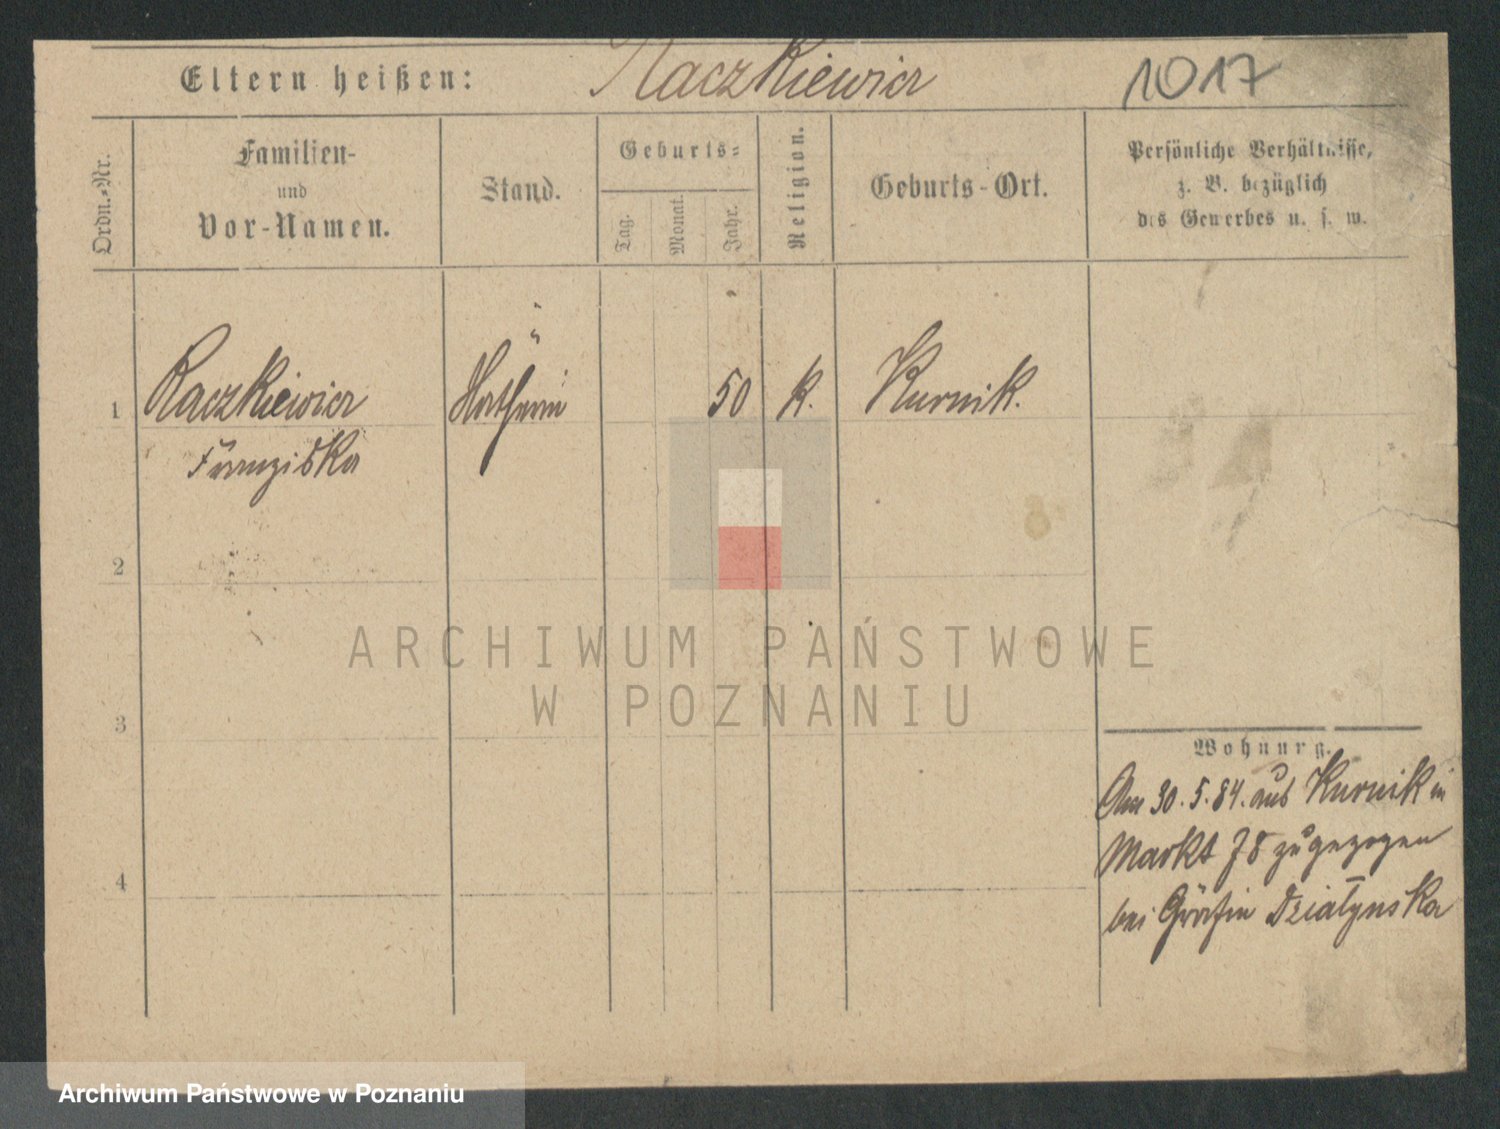 Eltern heißen: Raczkiewicz 1017
Ordn.-Nr.
Familien-
und
Vor-Namen.
Stand.
Geburts-
Tag.
Monat.
Jahr.
Religion.
Geburts-Ort.
Persönliche Verhältnisse,
z. B. bezüglich
des Gewerbes u. s. w.
1 Raczkiewicz 50 k. Kurnik.
Franziska
2
3
4
Wohnung.
Am 30.5.84. aus Kurnik in
Markt 78 zugezogen
bei Gräfin Działynska
ARCHIWUM PAŃSTWOWE
W POZNANIU
Archiwum Państwowe w Poznaniu